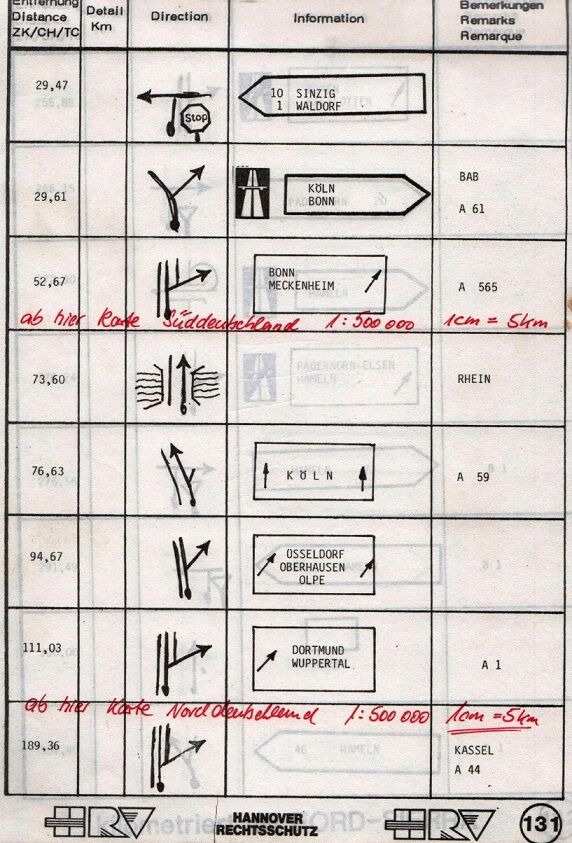 Entfernung Detail Direction Information Bemerkungen
Distance Km Remarks
ZK/CH/TC Remarque
29,47 Stop 10 SINZIG
1 WALDORF
29,61 KÖLN BAB
BONN A 61
52,67 BONN
MECKENHEIM A 565
ab hier Karte Süddeutschland 1:500 000 1cm = 5km
73,60 RHEIN
76,63 KÖLN A 59
94,67 ÜSSELDORF
OBERHAUSEN
OLPE
111,03 DORTMUND
WUPPERTAL A 1
ab hier Karte Norddeutschland 1:500 000 1cm = 5km
189,36 KASSEL
A 44
HANNOVER
RECHTSSCHUTZ
131